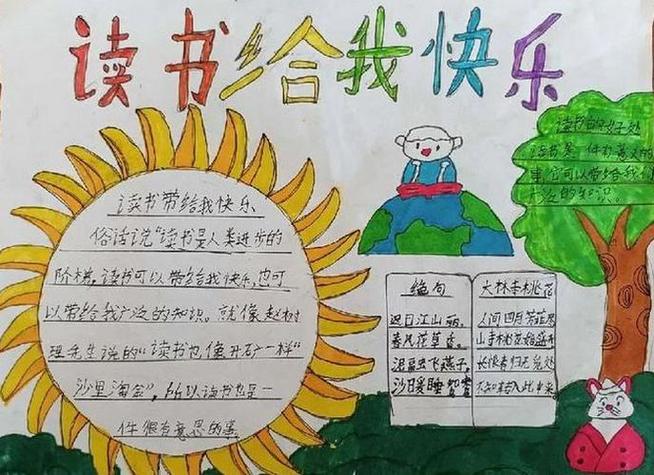 读书给我快乐
读书带给我快乐
俗话说“读书是人类进步的
阶梯，读书可以带给我快乐，也可
以带给我广泛的知识。就像赵树
理先生说的“读书也像开矿一样”
沙里淘金”，所以读书也是一
件很有意思的事
读书的好处
读书是一件有意义的
事，它可以带给我们
广泛的知识。
绝句
迟日江山丽，
春风花草香。
泥融飞燕子，
沙日暖睡鸳鸯
大林寺桃花
人间四月芳菲尽
山寺桃花始盛开
长恨春归无觅处
不知转入此中来